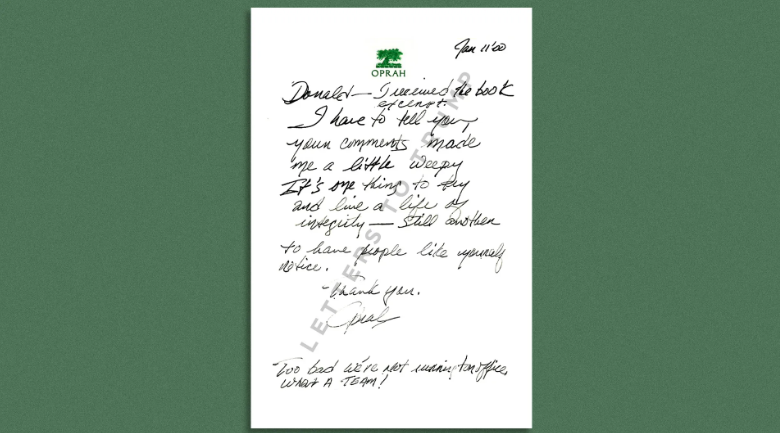 Jan 11'00
OPRAH
Donald — I received the book
excerpt.
I have to tell you,
your comments made
me a little weepy
It's one thing to try
and live a life of
integrity — still another
to have people like yourself
notice.
Thank you.
Oprah
Too bad we're not running for office,
WHAT A TEAM!
LETTERS TO TRUMP